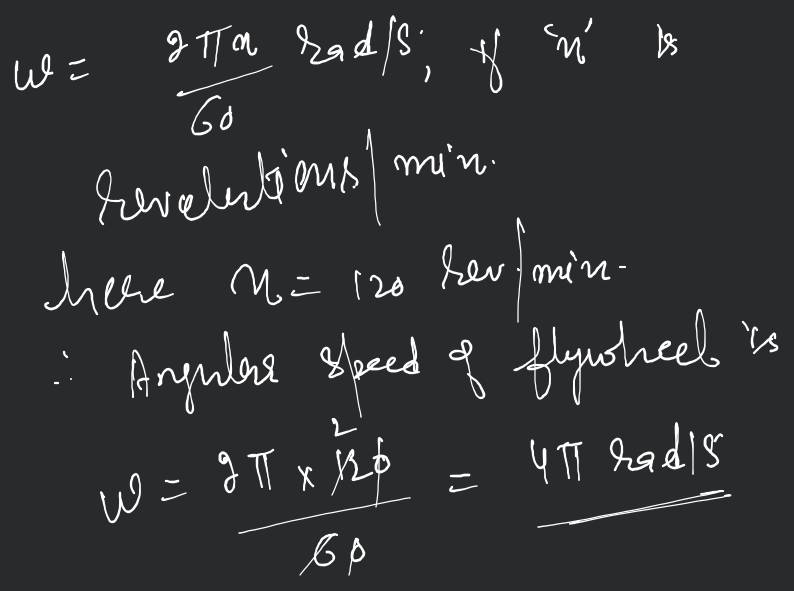 ω = 2πn/60 rad/s, if 'n' is
revolutions/min.
here n = 120 rev/min.
∴ Angular speed of flywheel is
ω = 2π × 120/60 = 4π rad/s
2